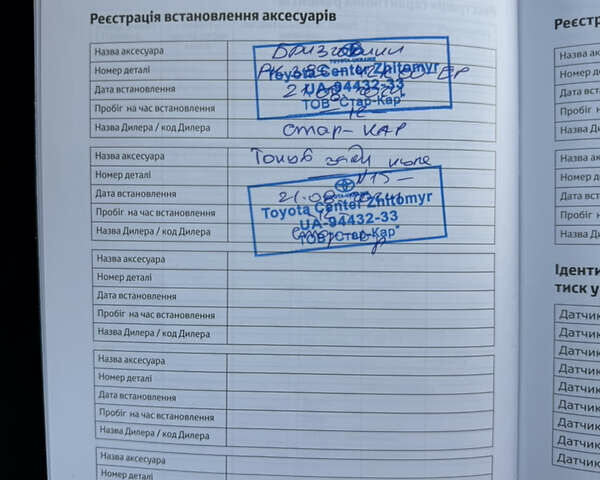 Реєстрація встановлення аксесуарів
Назва аксесуара Бризговики
Номер деталі
Дата встановлення
Пробіг на час встановлення
Назва Дилера / код Дилера Стар-КАР
TOYOTA UKRAINE
Toyota Center Zhitomyr
UA-94432-33
ТОВ "Стар-Кар"
Назва аксесуара
Номер деталі
Дата встановлення 21.08
Пробіг на час встановлення
Назва Дилера / код Дилера
Toyota Center Zhitomyr
UA-94432-33
ТОВ "Стар-Кар"
Назва аксесуара
Номер деталі
Дата встановлення
Пробіг на час встановлення
Назва Дилера / код Дилера
Назва аксесуара
Номер деталі
Дата встановлення
Пробіг на час встановлення
Назва Дилера / код Дилера
Назва аксесуара
Номер деталі
Реєстр
Назва ак
Номер д
Дата вст
Пробіг н
Назва Ди
Назва ак
Номер д
Дата вст
Пробіг н
Назва Ди
Іденти
тиск у
Датчик
Датчик
Датчик
Датчик
Датчик
Датчик
Датчик
Датчик